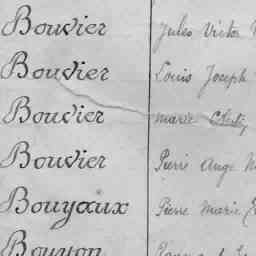 Bouvier Jules Victor
Bouvier Louis Joseph
Bouvier Marie
Bouvier Pierre Ange
Bouyaux Pierre Marie
Bouyon